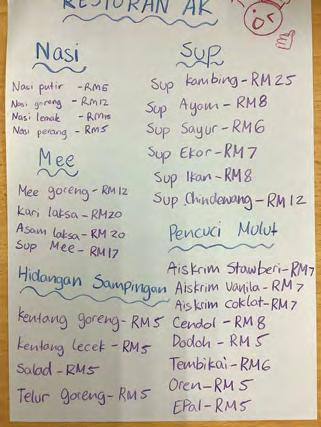 RESTORAN AK
Nasi
Nasi putir - RM5
Nasi goreng - RM12
Nasi lemak - RM10
Nasi perang - RM5
Mee
Mee goreng - RM12
Kari laksa - RM20
Asam laksa - RM20
Sup Mee - RM17
Hidangan Sampingan
Kentang goreng - RM5
Kentang lecek - RM5
Salad - RM5
Telur goreng - RM5
Sup
Sup Kambing - RM25
Sup Ayam - RM8
Sup Sayur - RM6
Sup Ekor - RM7
Sup Ikan - RM8
Sup Chindewang - RM12
Pencuci Mulut
Aiskrim Stawberi - RM7
Aiskrim Vanila - RM7
Aiskrim Coklat - RM7
Cendol - RM8
Dodoh - RM5
Tembikai - RM6
Oren - RM5
EPal - RM5